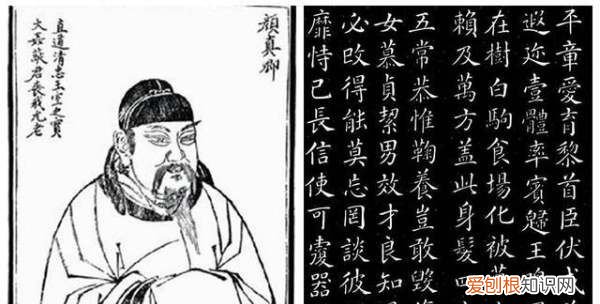 顏真卿
平章愛育黎首臣伏
遐迩壹體率賓歸王
在樹白駒食場化被草
賴及萬方蓋此身髮四
五常恭惟鞠養豈敢毀
女慕貞絜男效才良知
必改得能莫忘罔談彼
靡恃己長信使可覆器
爱刨根知识网